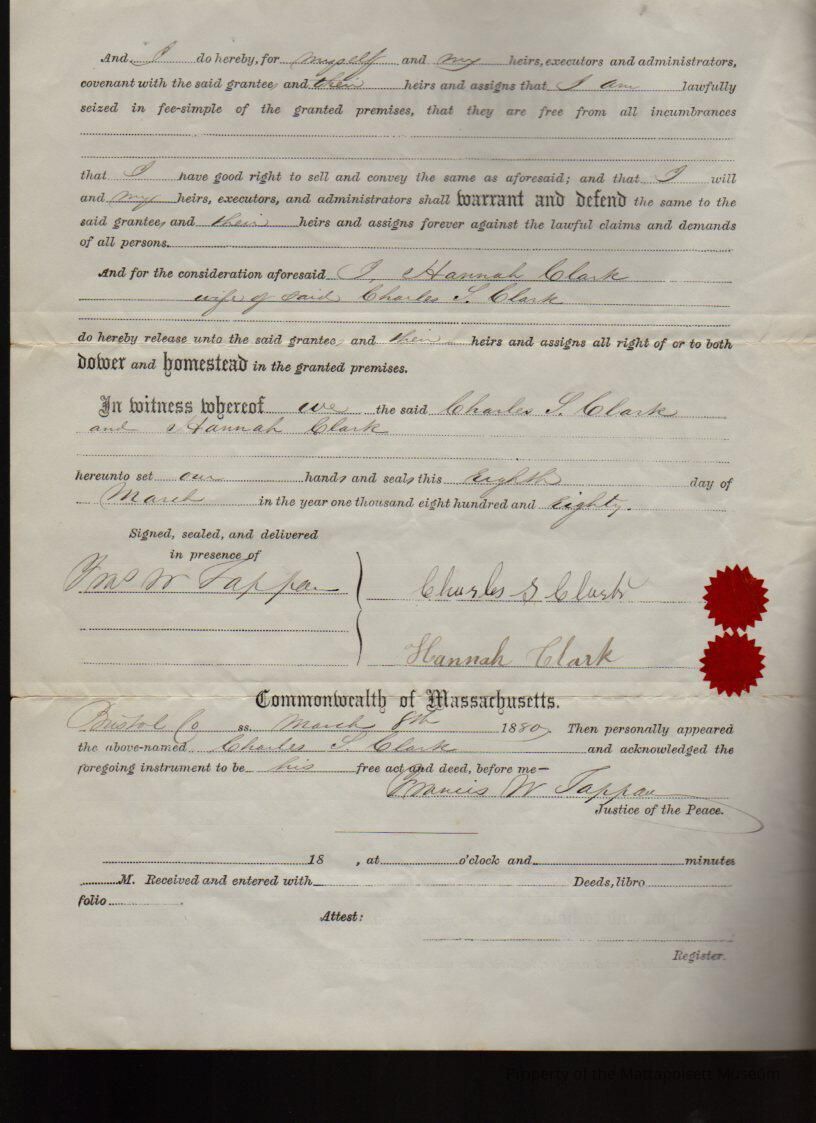 And I do hereby, for myself and my heirs, executors and administrators,
covenant with the said grantees and their heirs and assigns that I am lawfully
seized in fee-simple of the granted premises, that they are free from all incumbrances
that I have good right to sell and convey the same as aforesaid; and that I will
and my heirs, executors, and administrators shall warrant and defend the same to the
said grantees and their heirs and assigns forever against the lawful claims and demands
of all persons.
And for the consideration aforesaid I, Hannah Clark
wife of said Charles S. Clark
do hereby release unto the said grantees and their heirs and assigns all right of or to both
dower and homestead in the granted premises.
In witness whereof we the said Charles S. Clark
and Hannah Clark
hereunto set our hands and seals this Eighth day of
March in the year one thousand eight hundred and Eighty.
Signed, sealed, and delivered
in presence of
W Tappan
Charles S Clark
Hannah Clark
Commonwealth of Massachusetts.
Bristol Co ss. March 8th 1880, Then personally appeared
the above-named Charles S. Clark and acknowledged the
foregoing instrument to be his free act and deed, before me—
Francis W Tappan
Justice of the Peace.
18 , at o'clock and minutes
M. Received and entered with Deeds, libro
folio
Attest:
Register.
Property of the Mattapoisett Museum